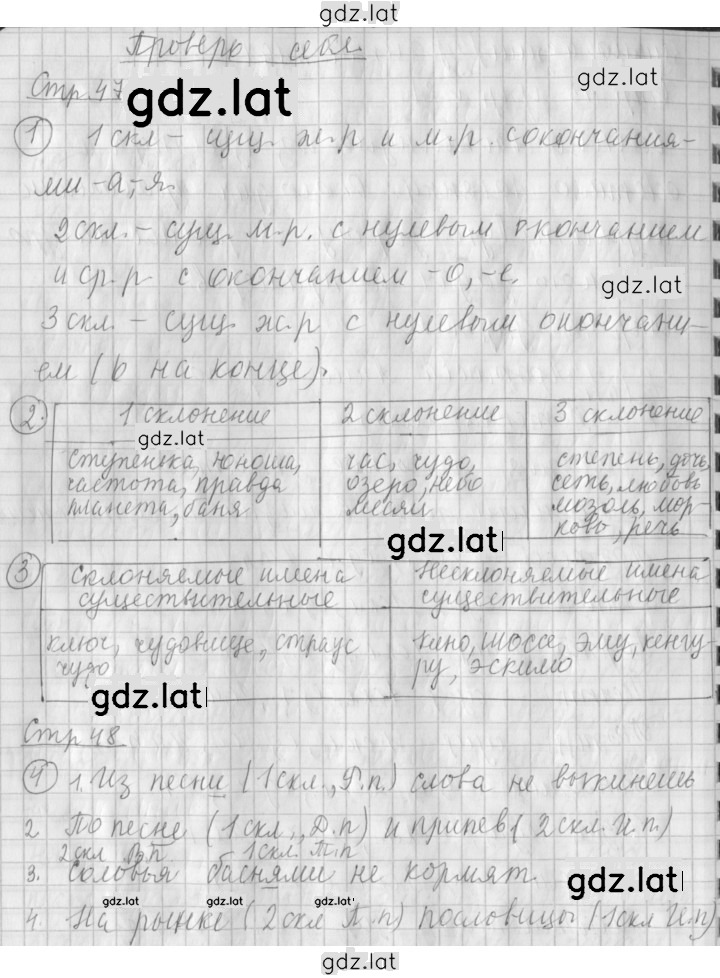 gdz.lat
Проверь себя.
Стр. 47 gdz.lat gdz.lat
1 1 скл – сущ. ж.р и м.р. с окончания-
ми -а, -я.
2 скл. – сущ. м.р. с нулевым окончанием
и ср.р с окончанием -о, -е. gdz.lat
3 скл. – сущ. ж.р с нулевым окончани-
ем (ь на конце).
2. 1 склонение 2 склонение 3 склонение
gdz.lat
ступенька, юноша, час, чудо, степень, дочь,
частота, правда озеро, небо сеть, любовь
планета, баня месяц мозоль, мор-
ковь, речь
gdz.lat
3 Склоняемые имена Несклоняемые имена
существительные существительные
ключ, чудовище, страус Кино, шоссе, эму, кенгу-
чудо ру, эскимо
gdz.lat
Стр 48
4 1. Из песни (1 скл., Р.п.) слова не выкинешь
2 По песне (1 скл., Д.п) и припев (2 скл. И.п.)
2 скл В.п 1 скл. Т.п
3. Соловья баснями не кормят. gdz.lat
gdz.lat gdz.lat gdz.lat
4. На рынке (2 скл П.п) пословицы (1 скл И.п)
gdz.lat